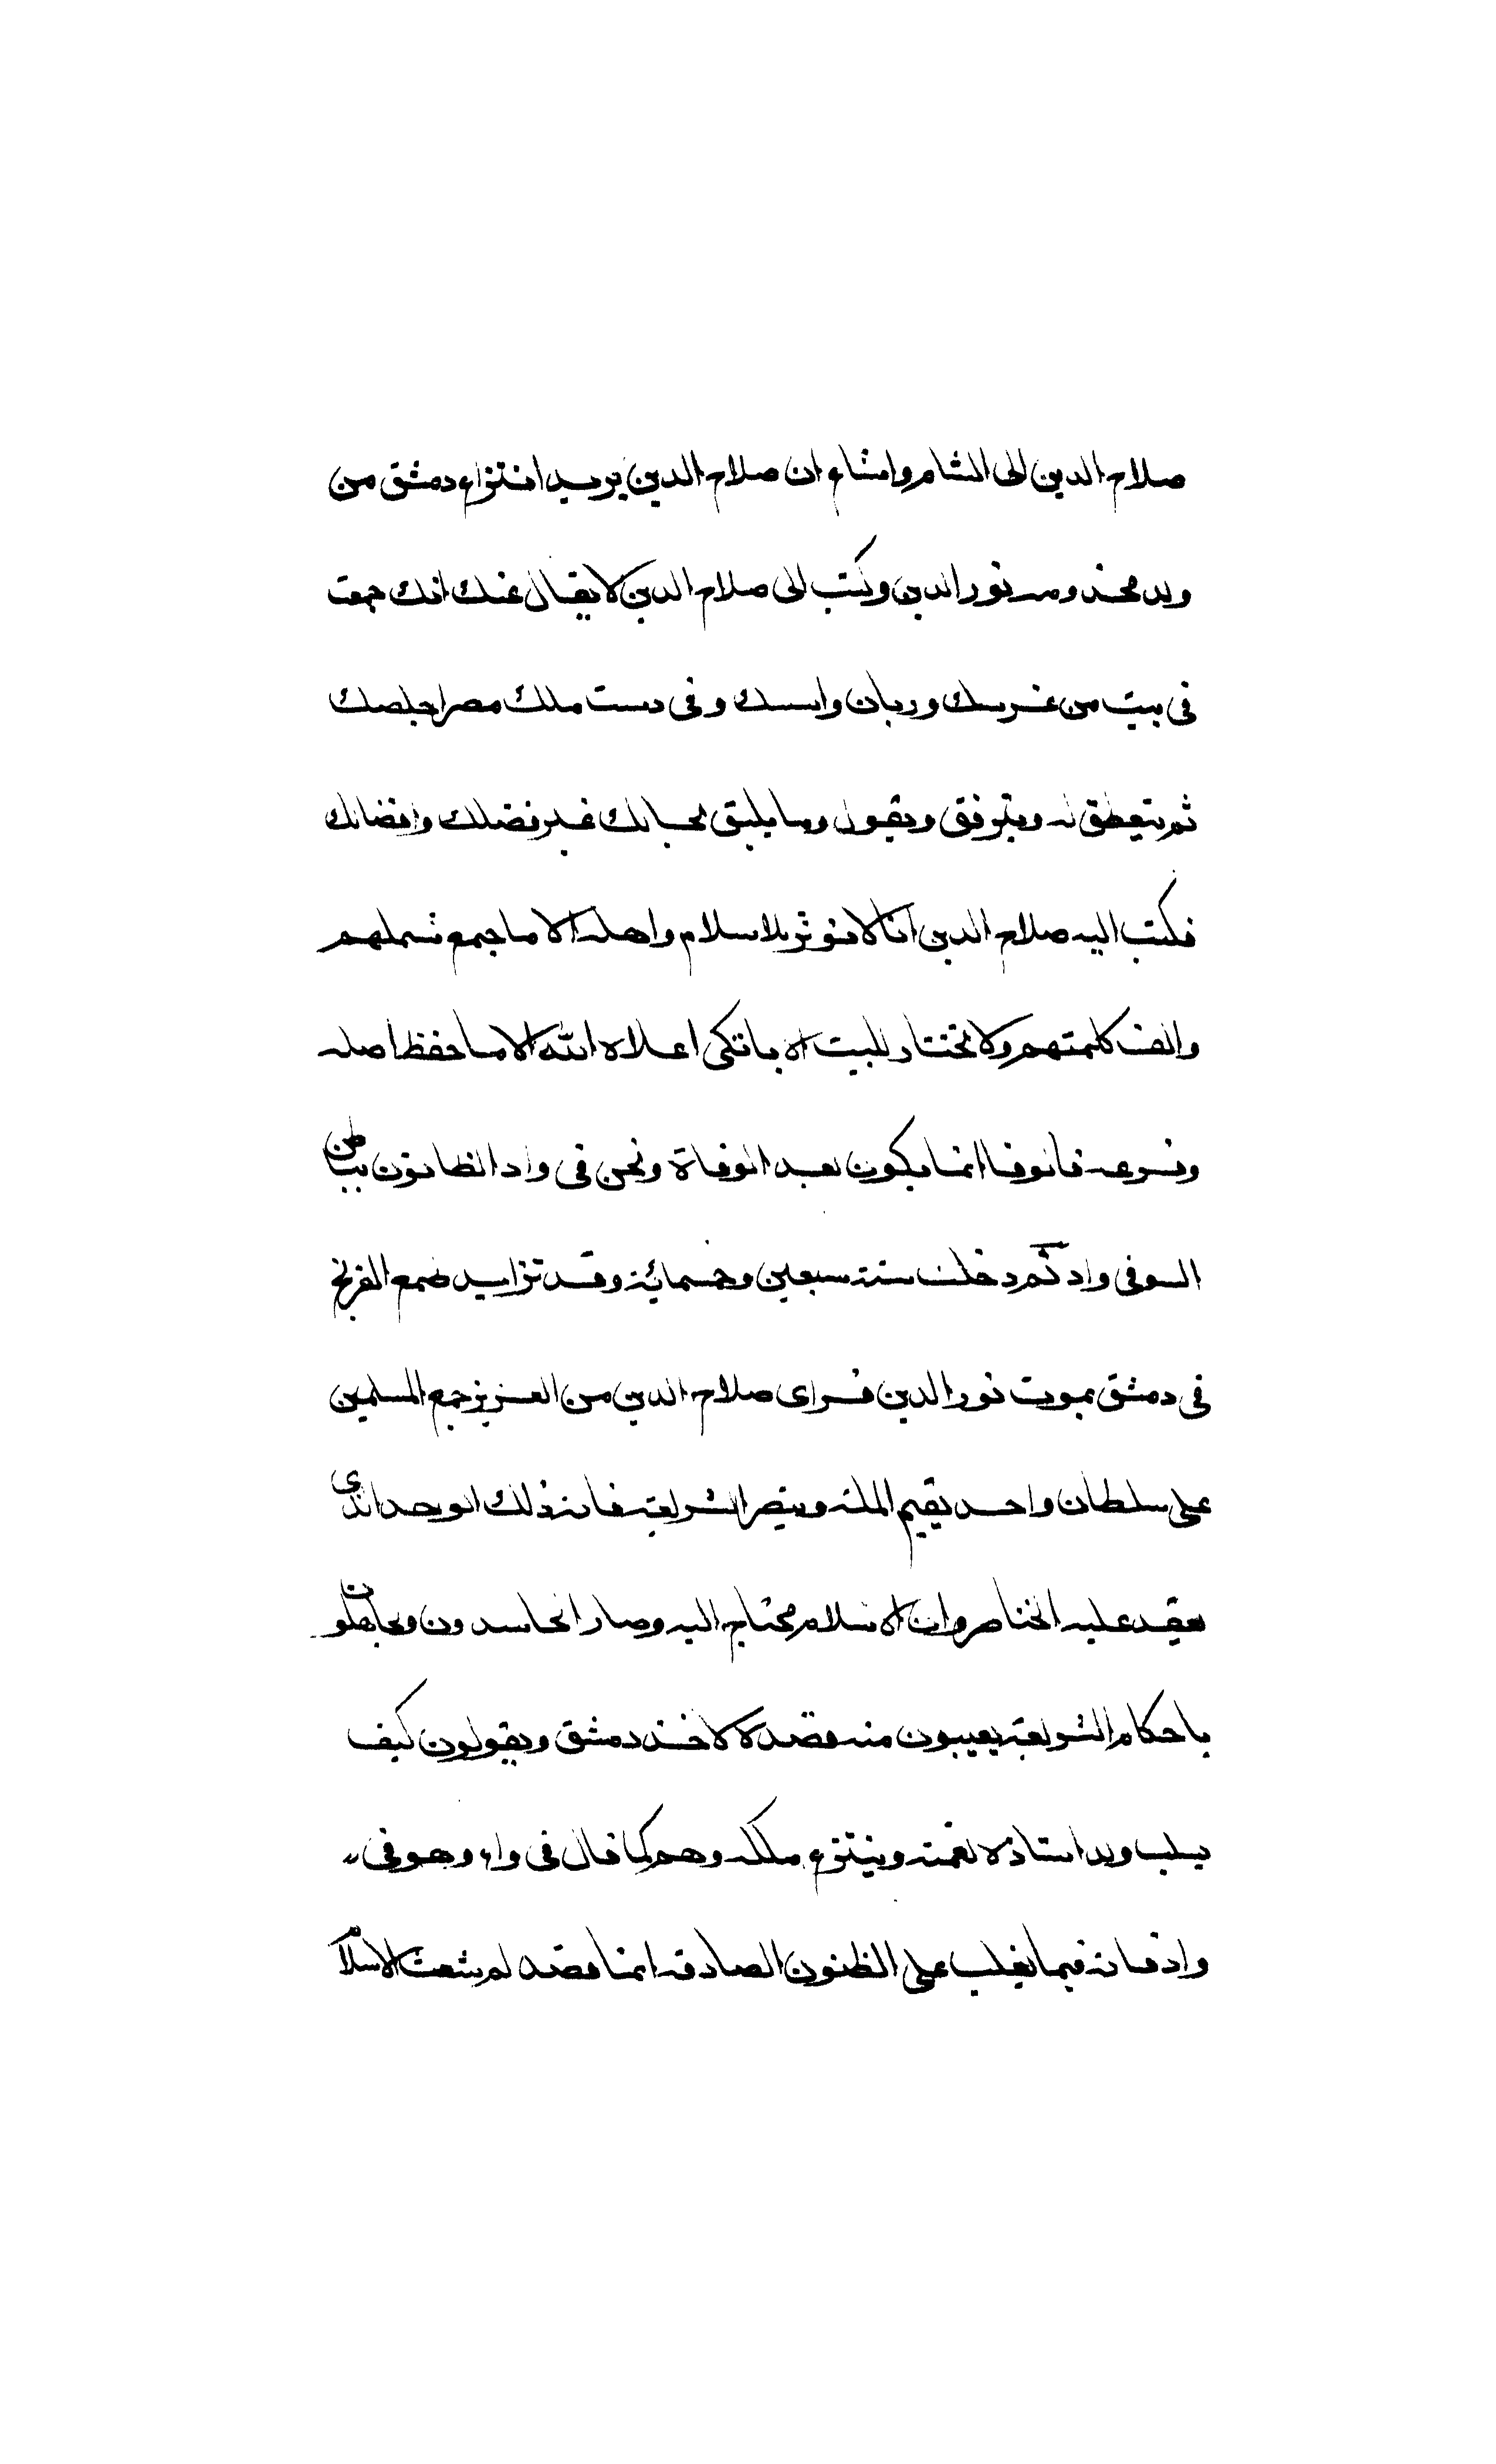 صلاح الدين الى الشام وامتاع ان صلاح الدين يريد انتزاع دمشق من
ولد مخدومه نور الدين وكتب الى صلاح الدين لا يقال عنك انك جمعت
فى بيت من غرسك ورباك واسسك وفى دست ملك مصر اجلصك
ثم يتعطق له ويترفق ويقول وما يليق بحالك غير فضلك وافضالك
فكتب اليه صلاح الدين انا لا نوثر للاسلام واهله الا ما جمع شملهم
والف كلمتهم ولا نختار للبيت الاباتكى اعلاه الله الا ما حفظ اصله
وفرعه فالوفا انما يكون بعد الوفاة ونحن فى واد الظانون بنا ظن
السو فى واد ثم دخلت سنة سبعين وخمسمائة وقد تزايد طمع الفرنج
فى دمشق بموت نور الدين فراى صلاح الدين من العزيز جمع المسلمين
على سلطان واحد يقيم الملة وينصر الشريعة فانه ذلك الوحد الذى
تعقد عليه الخناصر وان الاسلام محتاج اليه وصار الحاسدون وبجاهلون
باحكام الشريعة يعيبون منه قصده لاخذ دمشق ويقولون كيف
يسلب ولد استاذه نعمته وينتزع ملكه وهم كما قال فى واد وهو فى
واد فانه فيما يغلب على الظنون الصادقه انما قصد لم شعث الاسلام